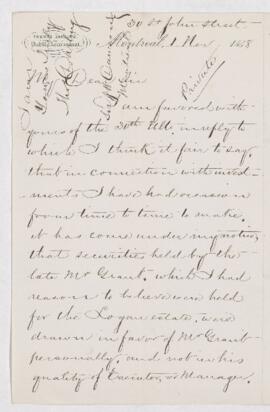 30 St John Street,
Montreal, 1 Nov 1878
Private
My Dear Sir
I am favored with
yours of the 30th Ulto. in reply to
which I think it fair to say,
that in connection with invest-
ments I have had occasion
from time to time to make,
it has come under my notice,
that securities held by the
late Mr Grant, which I had
reason to believe were held
for the Logan estate, were
drawn in favor of Mr Grant
personally, and not in his
quality of Executor, or Manager.